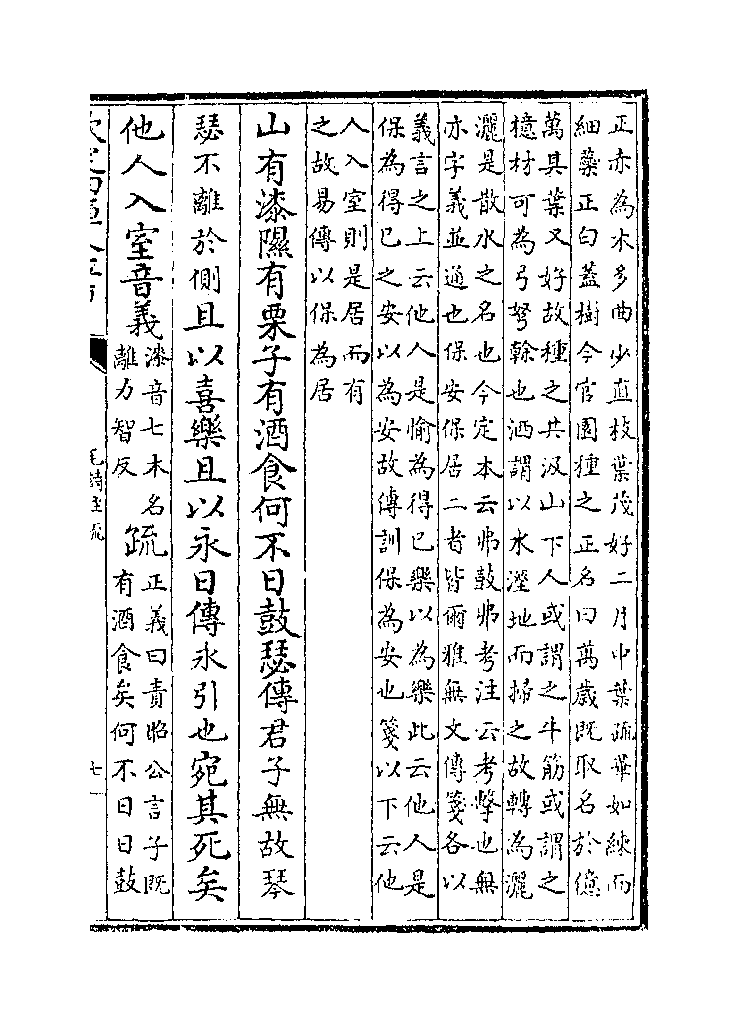 正赤為木多曲少直枝葉茂好二月中葉疏華如練而
細蘂正白蓋樹今官園種之正名曰萬歲既取名於億
萬其葉又好故種之共汲山下人或謂之牛筋或謂之
檍材可為弓弩榦也洒謂以水溼地而掃之故轉為灑
灑是散水之名也今定本云弗鼓弗考注云考擊也無
亦字義並通也保安保居二者皆爾雅無文傳箋各以
義言之上云他人是愉為得已樂以為樂此云他人是
保為得已之安以為安故傳訓保為安也箋以下云他
人入室則是居而有
之故易傳以保為居
山有漆隰有栗子有酒食何不日鼓瑟傳君子無故琴
瑟不離於側且以喜樂且以永日傳永引也宛其死矣
他人入室音義
漆音七木名
離力智反
疏
正義曰責昭公言子既
有酒食矣何不日日鼓
毛詩注疏